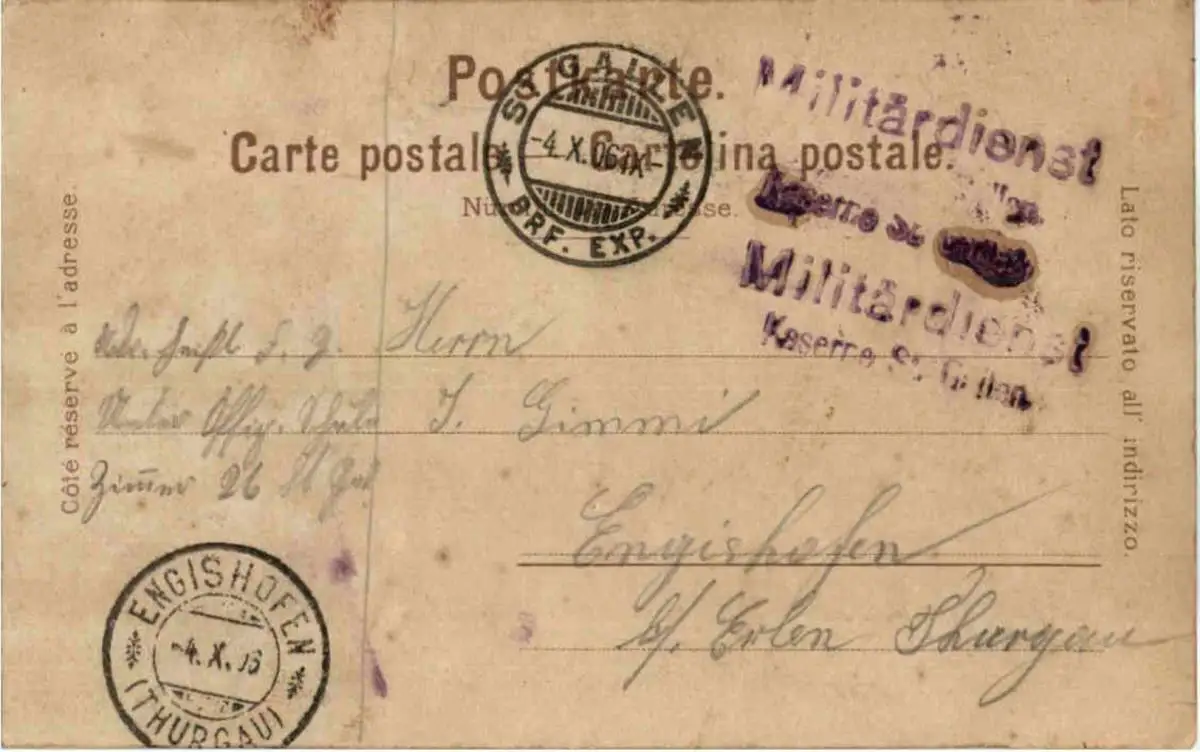 Postkarte.
Carte postale. Cartolina postale.
Côté réservé à l'adresse.
Lato riservato all' indirizzo.
ST. GALLEN
-4.X.06.IX-
BRF. EXP.
Militärdienst
Kaserne St.
Militärdienst
Kaserne St. Gallen.
Herrn
Unter Offiz. Schule J. Gimmi
Zimmer 26 St Gal
Engishofen
b/. Erlen Thurgau
ENGISHOFEN
-4.X.06
(THURGAU)